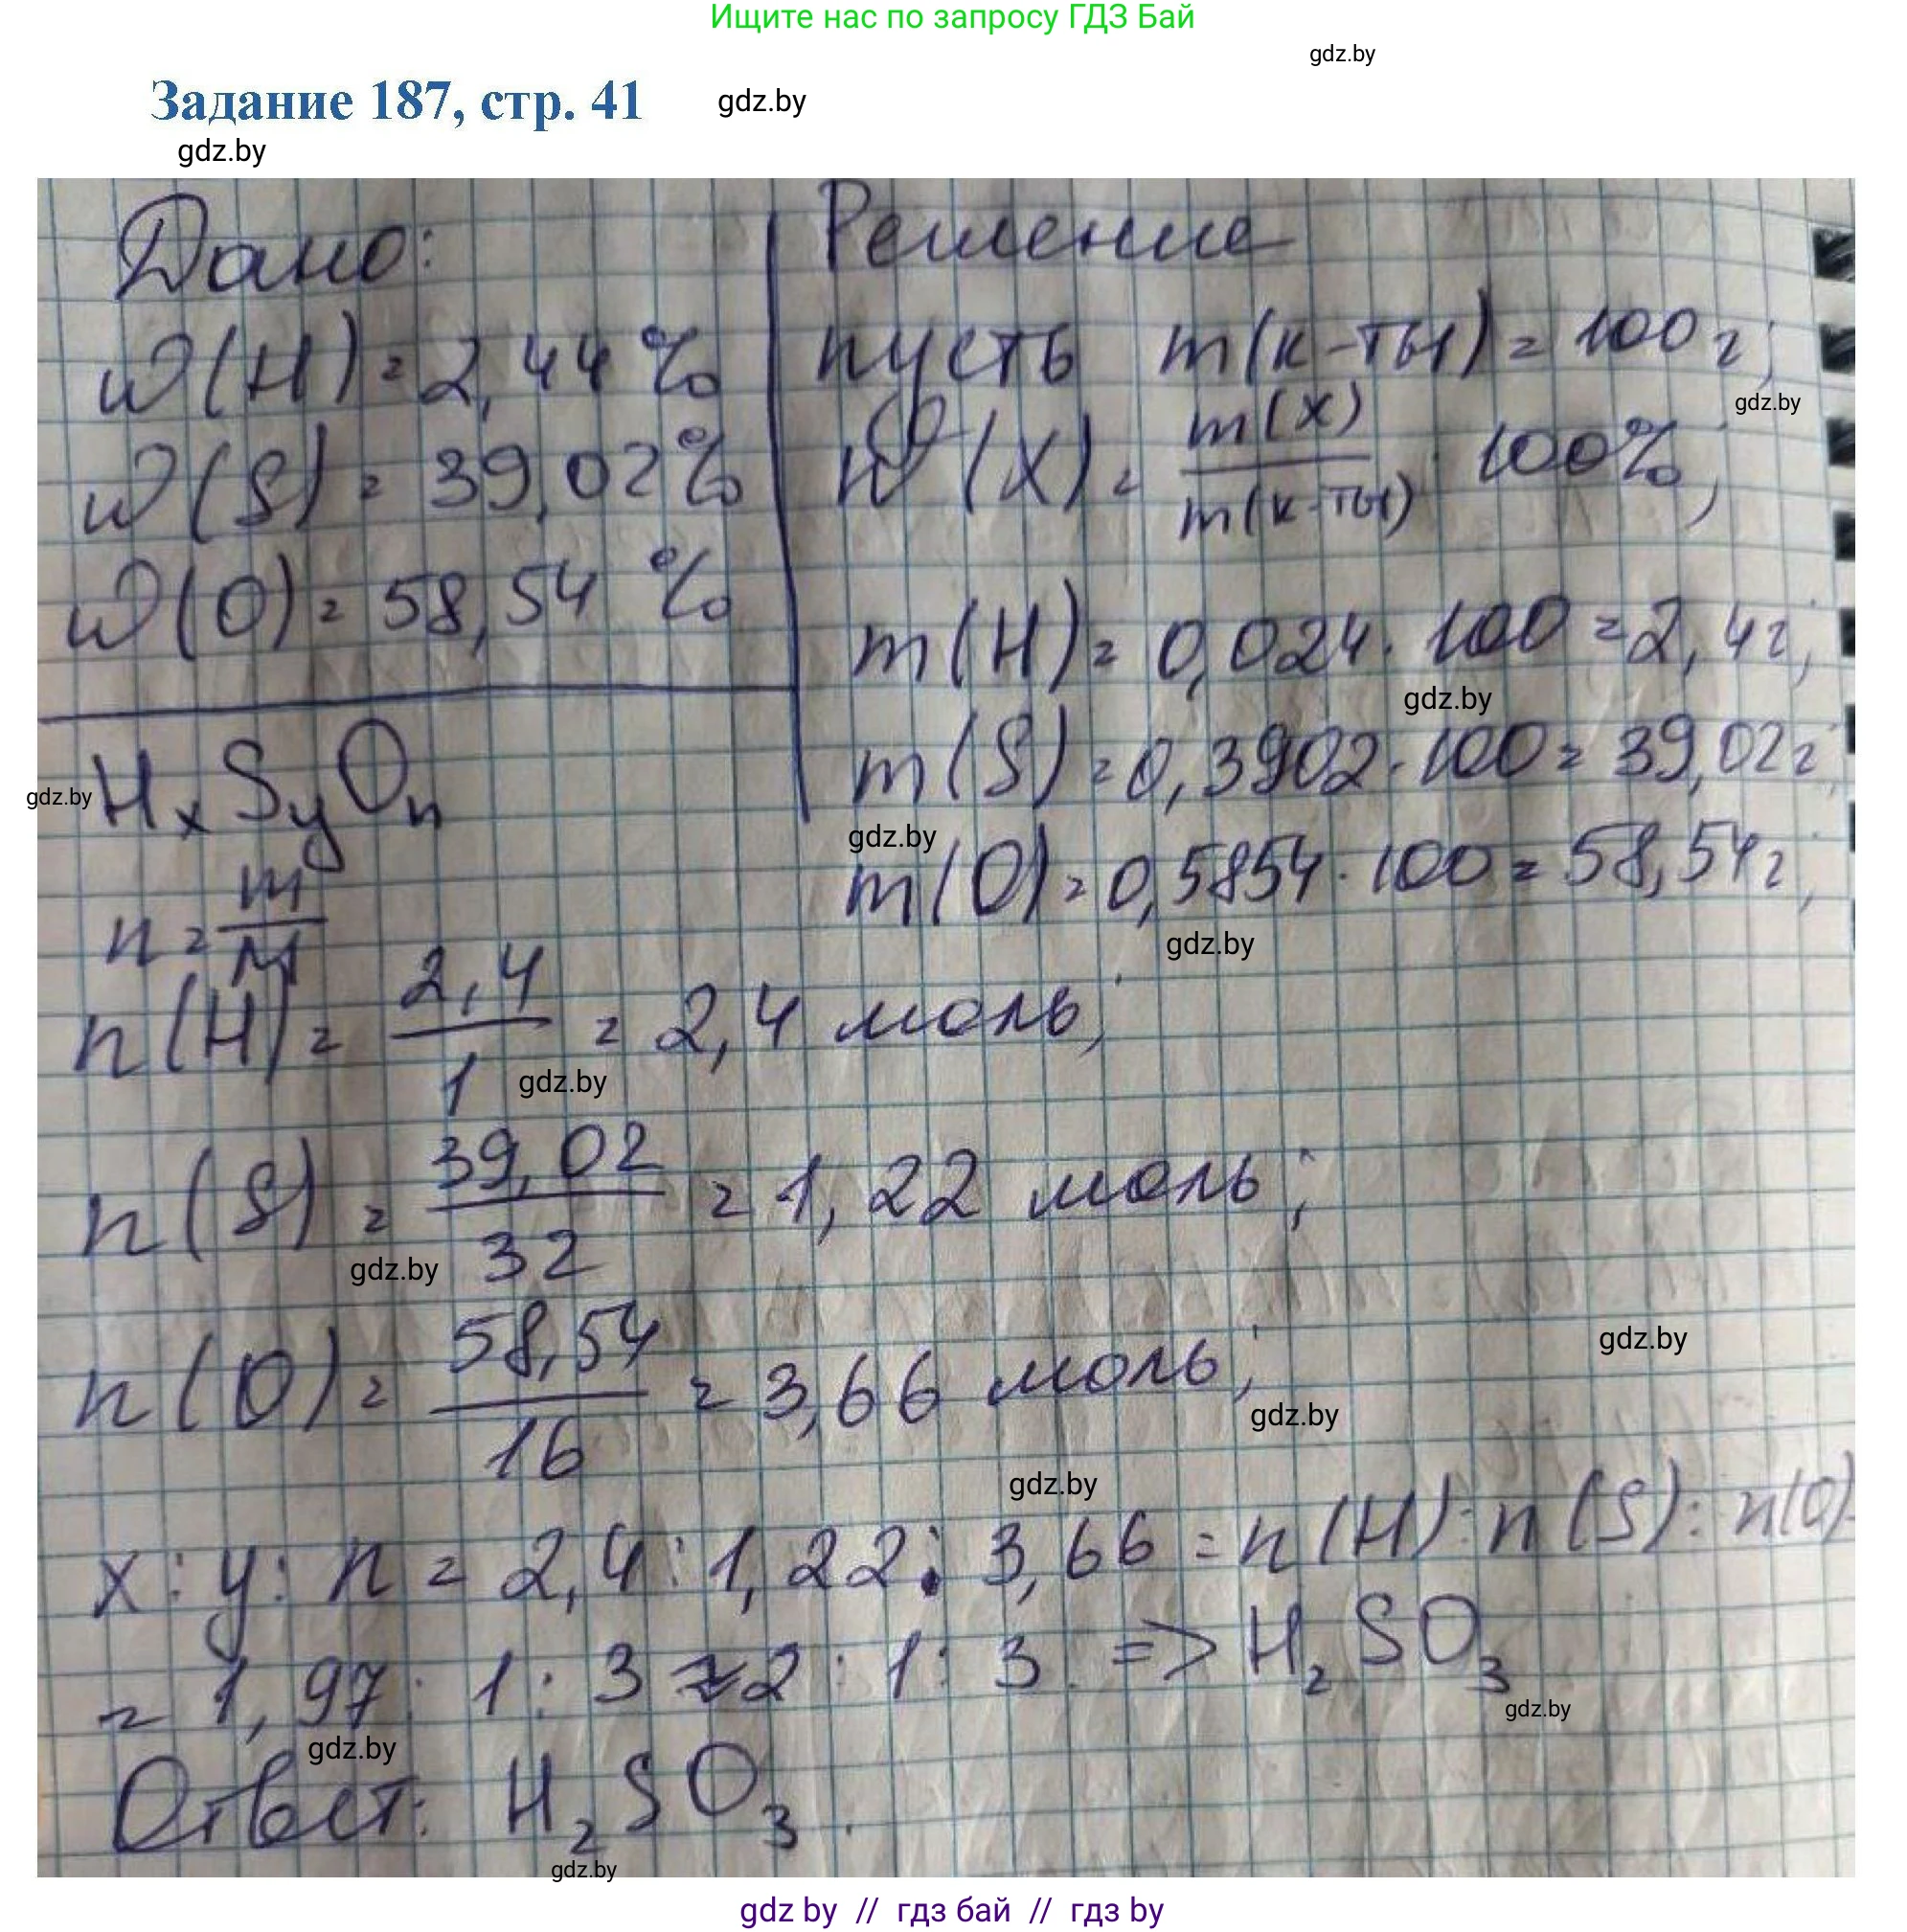 Ищите нас по запросу ГДЗ Бай
gdz.by
Задание 187, стр. 41
gdz.by
gdz.by
Дано:
w(H) = 2,44 %
w(S) = 39,02%
w(O) = 58,54 %
Решение
пусть m(к-ты) = 100 г;
gdz.by
w(X) = m(x)/m(к-ты) · 100%;
m(H) = 0,024 · 100 = 2,4г;
gdz.by
m(S) = 0,3902 · 100 = 39,02г;
gdz.by
m(O) = 0,5854 · 100 = 58,54г;
gdz.by
HxSyOn
gdz.by
n = m/M
n(H) = 2,4/1 = 2,4 моль;
gdz.by
n(S) = 39,02/32 = 1,22 моль;
gdz.by
n(O) = 58,54/16 = 3,66 моль;
gdz.by
gdz.by
gdz.by
x : y : n = 2,4 : 1,22 : 3,66 = n(H) : n(S) : n(O)
= 1,97 : 1 : 3 ≈ 2 : 1 : 3. => H₂SO₃
gdz.by
gdz.by
Ответ: H₂SO₃.
gdz.by
gdz by // гдз бай // гдз by